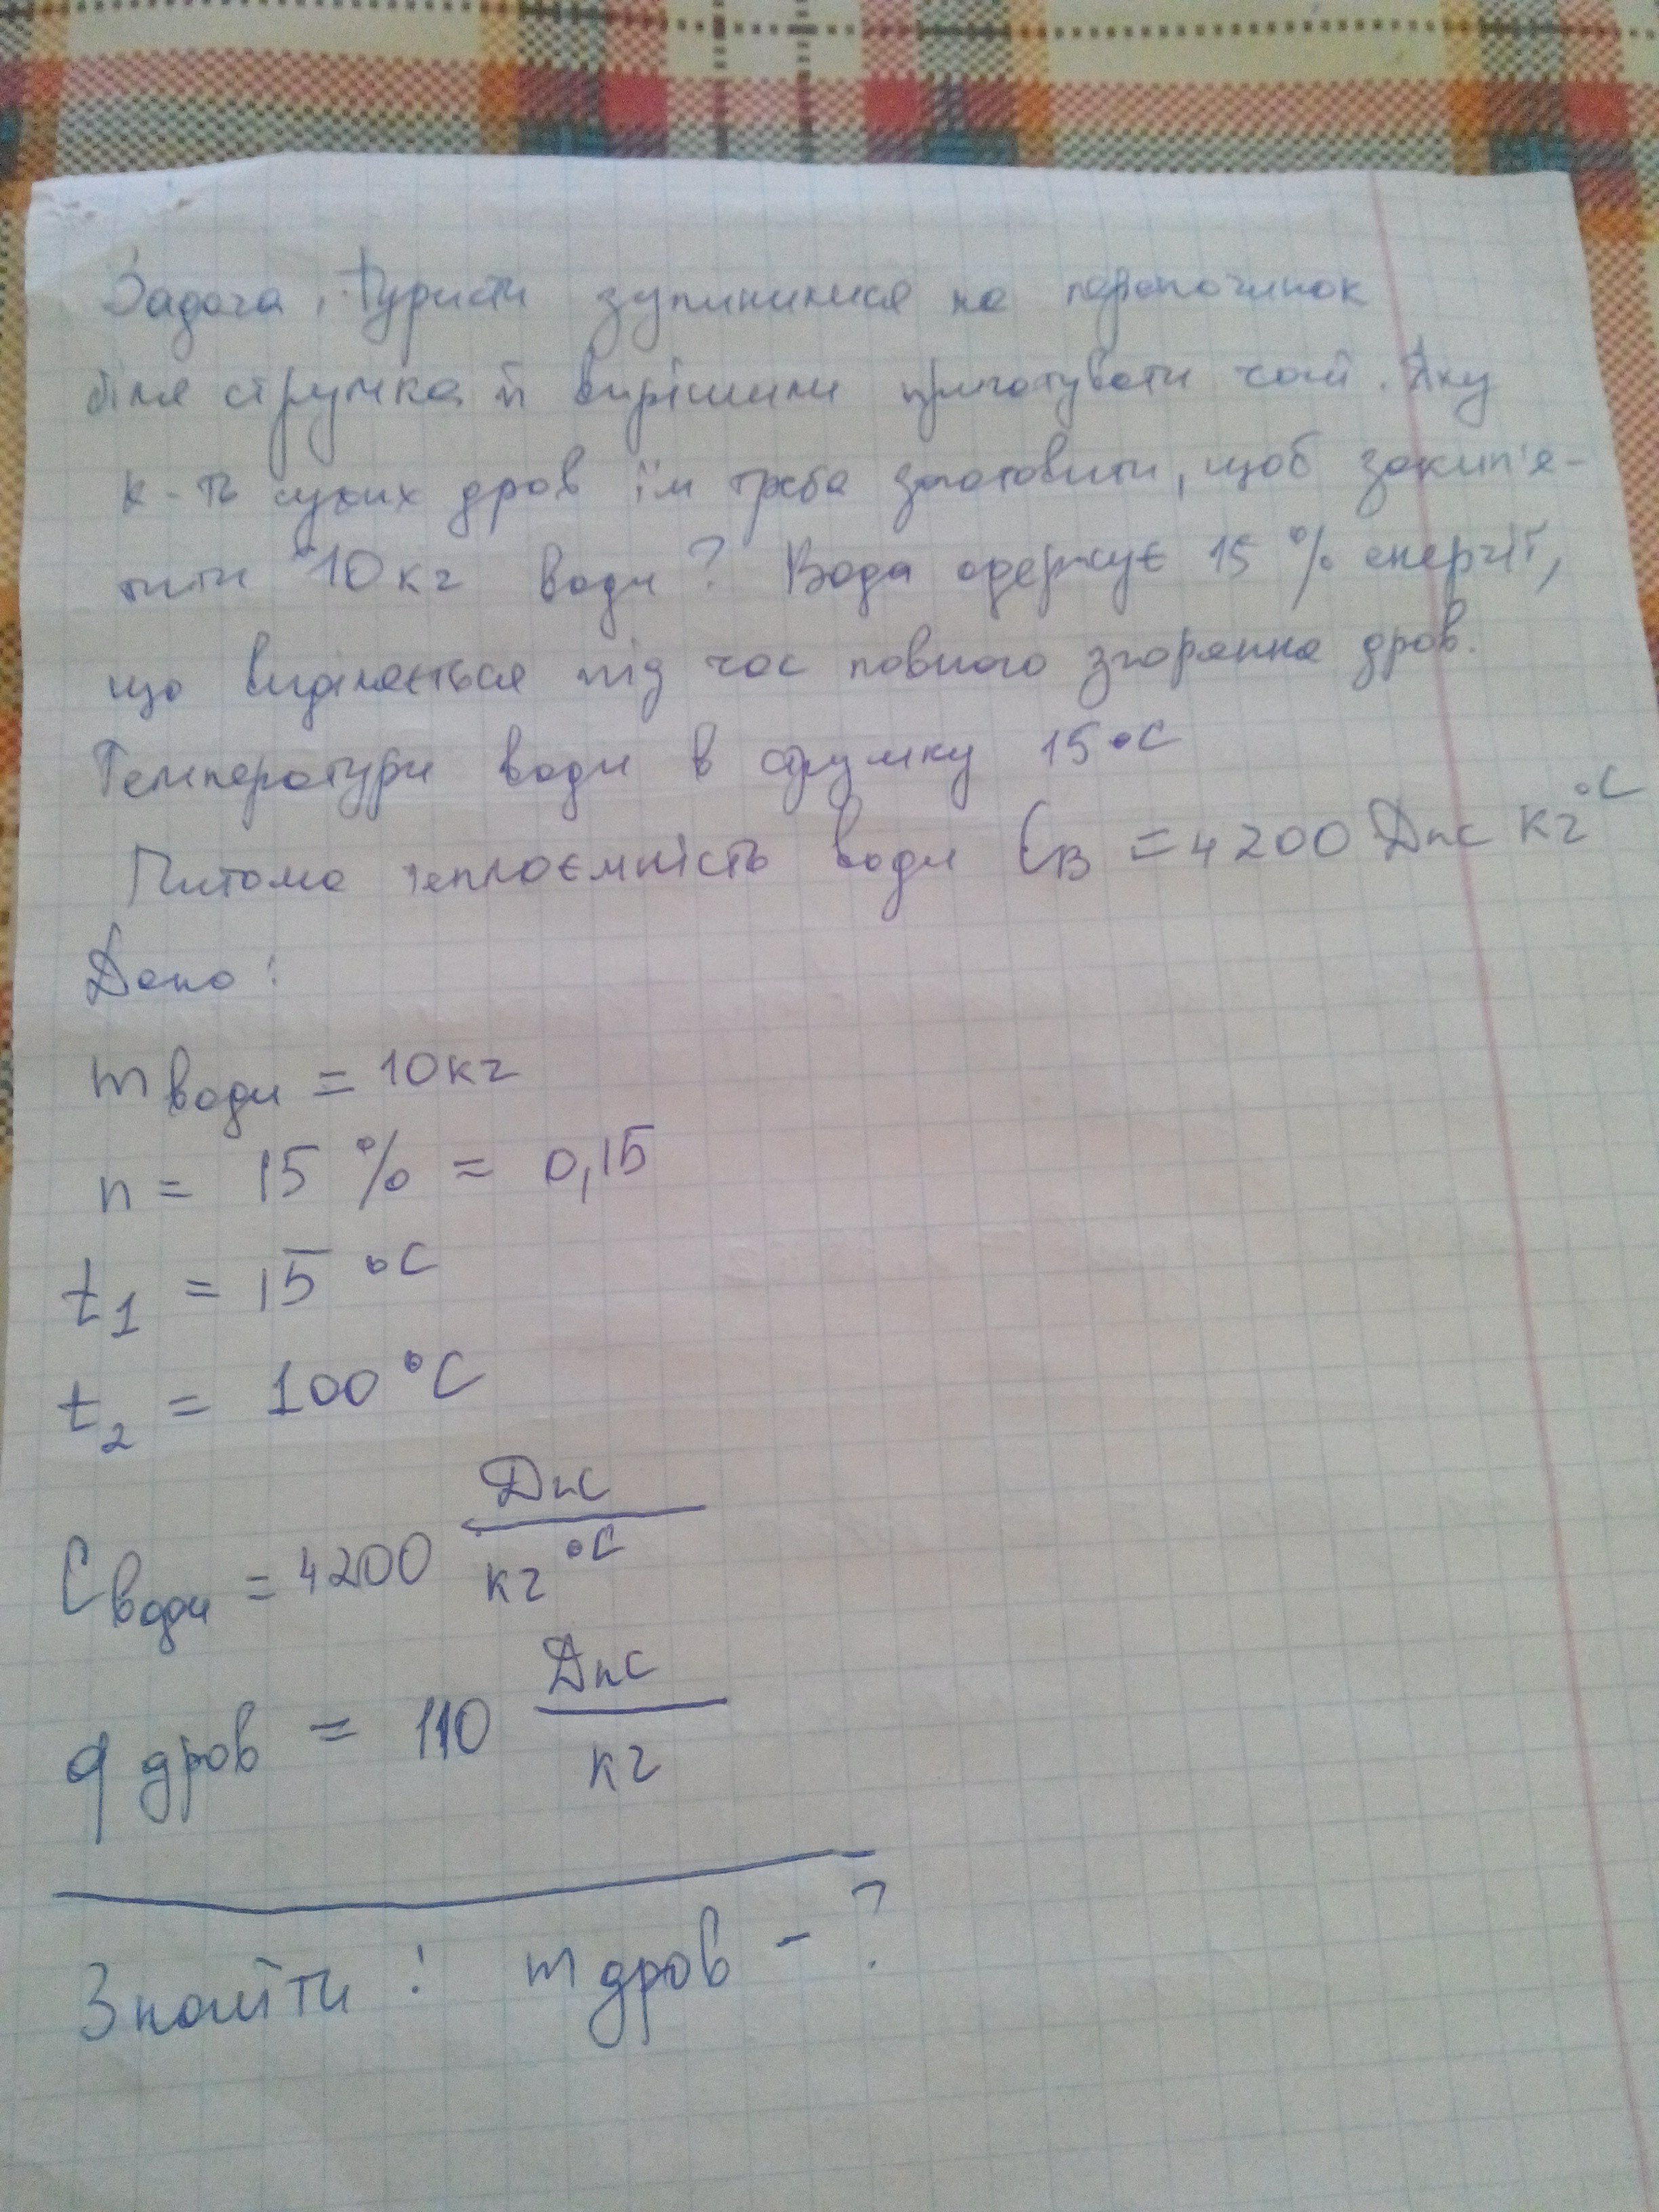 Задача. Туристи зупинилися на перепочинок
біля струмка й вирішили приготувати чай. Яку
к-ть сухих дров їм треба заготовити, щоб закип'я-
тити 10 кг води? Вода одержує 15 % енергії,
що виділяється під час повного згоряння дров.
Температури води в струмку 15 °C
Питома теплоємність води Cв = 4200 Дж кг °C
Дано:
m води = 10 кг
n = 15 % = 0,15
t1 = 15 °C
t2 = 100 °C
C води = 4200 Дж / кг °C
q дров = 110 Дж / кг
Знайти: m дров - ?